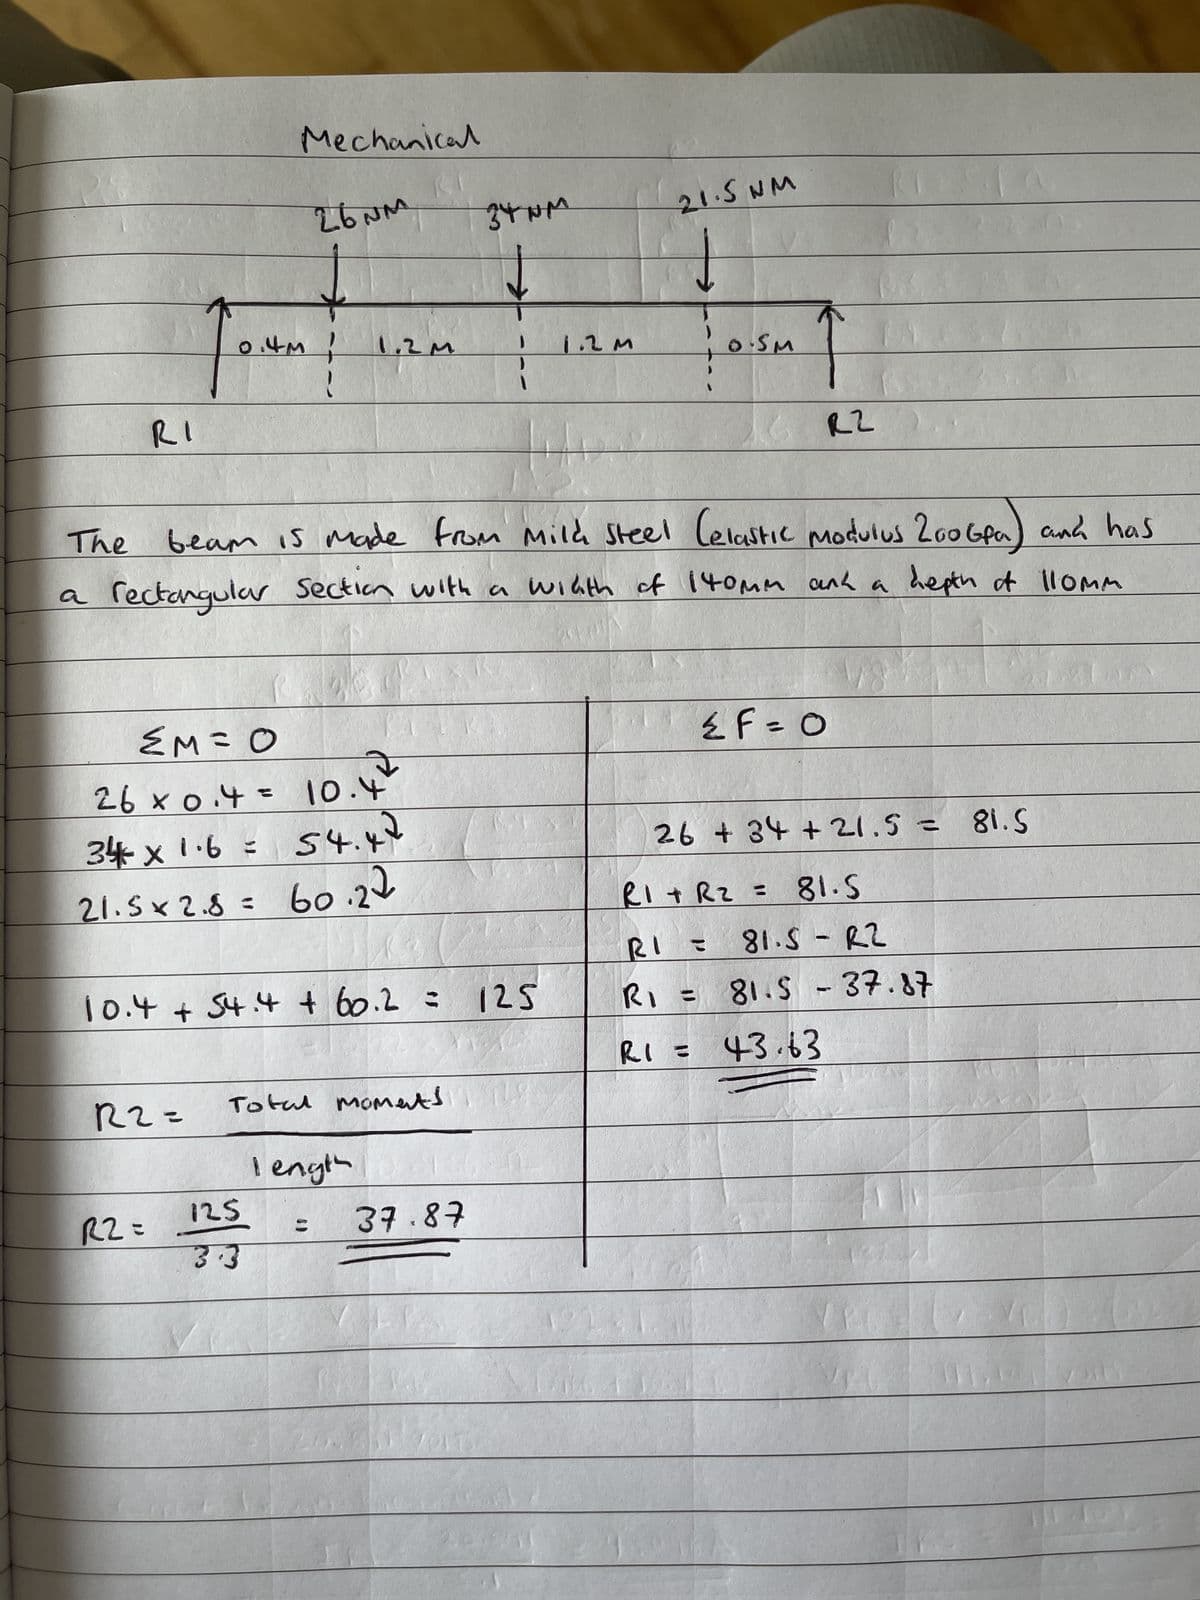 Mechanical
26 NM 34 NM 21.5 NM
0.4M 1.2 M 1.2 M 0.5M
R1 R2
The beam is made from Mild Steel (elastic modulus 200 Gpa) and has
a rectangular section with a width of 140mm and a depth of 110mm
ΣM = 0
26 x 0.4 = 10.4
34 x 1.6 = 54.4
21.5 x 2.8 = 60.2
10.4 + 54.4 + 60.2 = 125
R2 = Total moments
length
R2 = 125
3.3
= 37.87
ΣF = 0
26 + 34 + 21.5 = 81.5
R1 + R2 = 81.5
R1 = 81.5 - R2
R1 = 81.5 - 37.87
R1 = 43.63